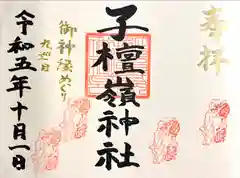 奉拝
子檀嶺神社
御神渓めぐり
令和五年十月一日